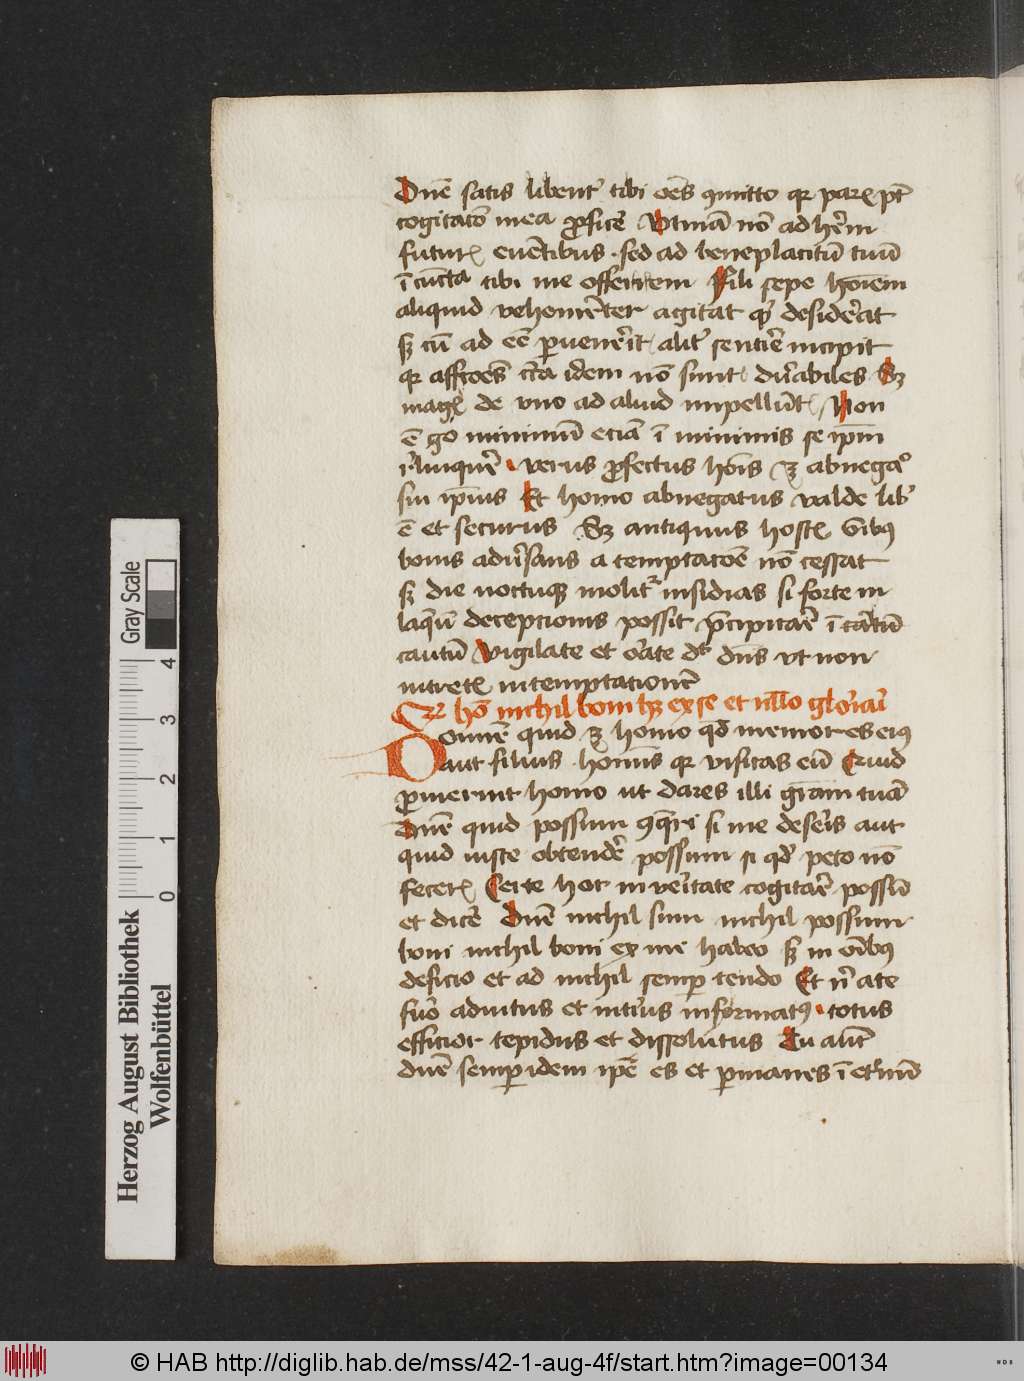 Dn̄e satis libent͛ tibi oēs ꝯmitto qꝛ paꝝ pt̄
cogitac̄o mea ꝓfice͛ Vtinā nō ad h̄em
futuꝝ euētibus · sed ad beneplacitū tuū
ī cūcta tibi me offerrem Fili sepe hoīem
aliquid vehemēter agitat qď desid͛at
sꝫ cū ad eē ꝑuen͛it alit͛ sentire incipit
qꝛ affcōes c͛ca idem nō sunt durabiles Sꝫ
maḡ de vno ad aliud impellūt Non
ē g̊o minimū eciā ī minimis se ip̄m
r͛linque͛ · verus ꝓfectus hoīs ē abnegac̊
sui ip̄ius Et homo abnegatus valde lib͛
ē et securus Sꝫ antiquus hostꝭ oībꝰ
bonis adu͛sans a temptac̄oe nō cessat
sꝫ die noctuqꝫ molit͛ insidias si forte in
laq̄ū deceptionis possit p̄cipitare͛ īca͛tū
cautū Vigilate et or͛ate dt̄ dn̄s vt non
intretꝭ in temptationē
Qꝛ hō nichil boni hꝫ ex se et nll̄o glo͛iai͛
Domine͛ quid ē homo qď memor es eiꝰ
aut filius hoīnis qꝛ visitas eū Quid
ꝓmeruit homo ut dares illi grām tuā
Dn̄e quid possum ꝯq̄ri si me des͛is aut
quid iuste obtende͛ possum si qď peto nō
feceꝝ Certe hoc in ve͛itate cogitare͛ possū
et dice͛ Dn̄e nichil sum nichil possum
boni nichil boni ex me habeo sꝫ in oībꝰ
deficio et ad nichil semꝑ tendo Et nͥ a te
fu͛o adiutus et int͛ius informatꝰ · totus
efficior tepidus et dissolutus Tu aut̄
dn̄e semꝑ idem ipē es et ꝑmanes ī et͛nū
Herzog August Bibliothek
Wolfenbüttel
Gray Scale
0 1 2 3 4
© HAB http://diglib.hab.de/mss/42-1-aug-4f/start.htm?image=00134